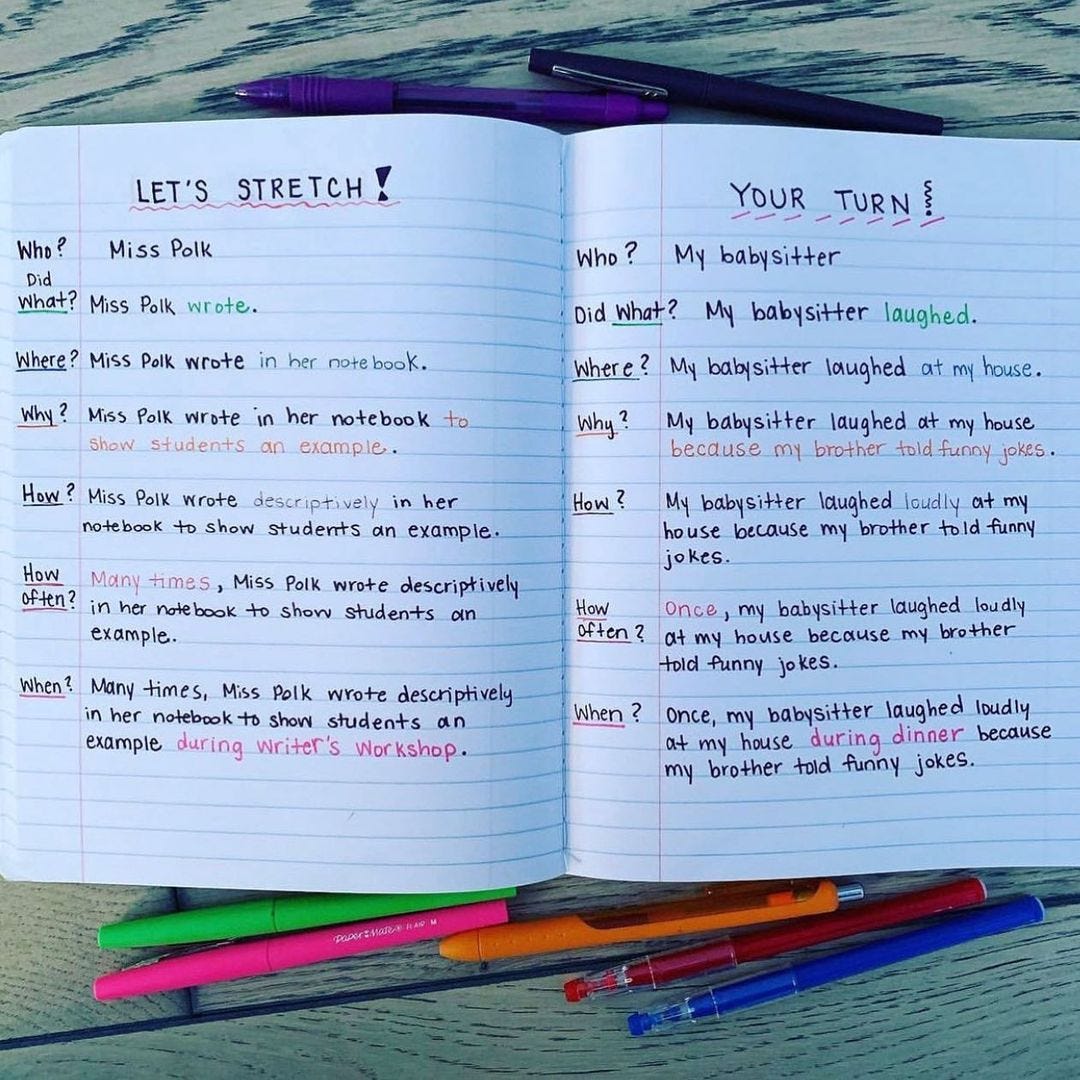 LET'S STRETCH!
Who? Miss Polk
Did
What? Miss Polk wrote.
Where? Miss Polk wrote in her notebook.
Why? Miss Polk wrote in her notebook to
show students an example.
How? Miss Polk wrote descriptively in her
notebook to show students an example.
How
often? Many times, Miss Polk wrote descriptively
in her notebook to show students an
example.
When? Many times, Miss Polk wrote descriptively
in her notebook to show students an
example during Writer's Workshop.
YOUR TURN!
Who? My babysitter
Did What? My babysitter laughed.
Where? My babysitter laughed at my house.
Why? My babysitter laughed at my house
because my brother told funny jokes.
How? My babysitter laughed loudly at my
house because my brother told funny
jokes.
How
often? Once, my babysitter laughed loudly
at my house because my brother
told funny jokes.
When? Once, my babysitter laughed loudly
at my house during dinner because
my brother told funny jokes.
Paper:Mate® FLAIR M